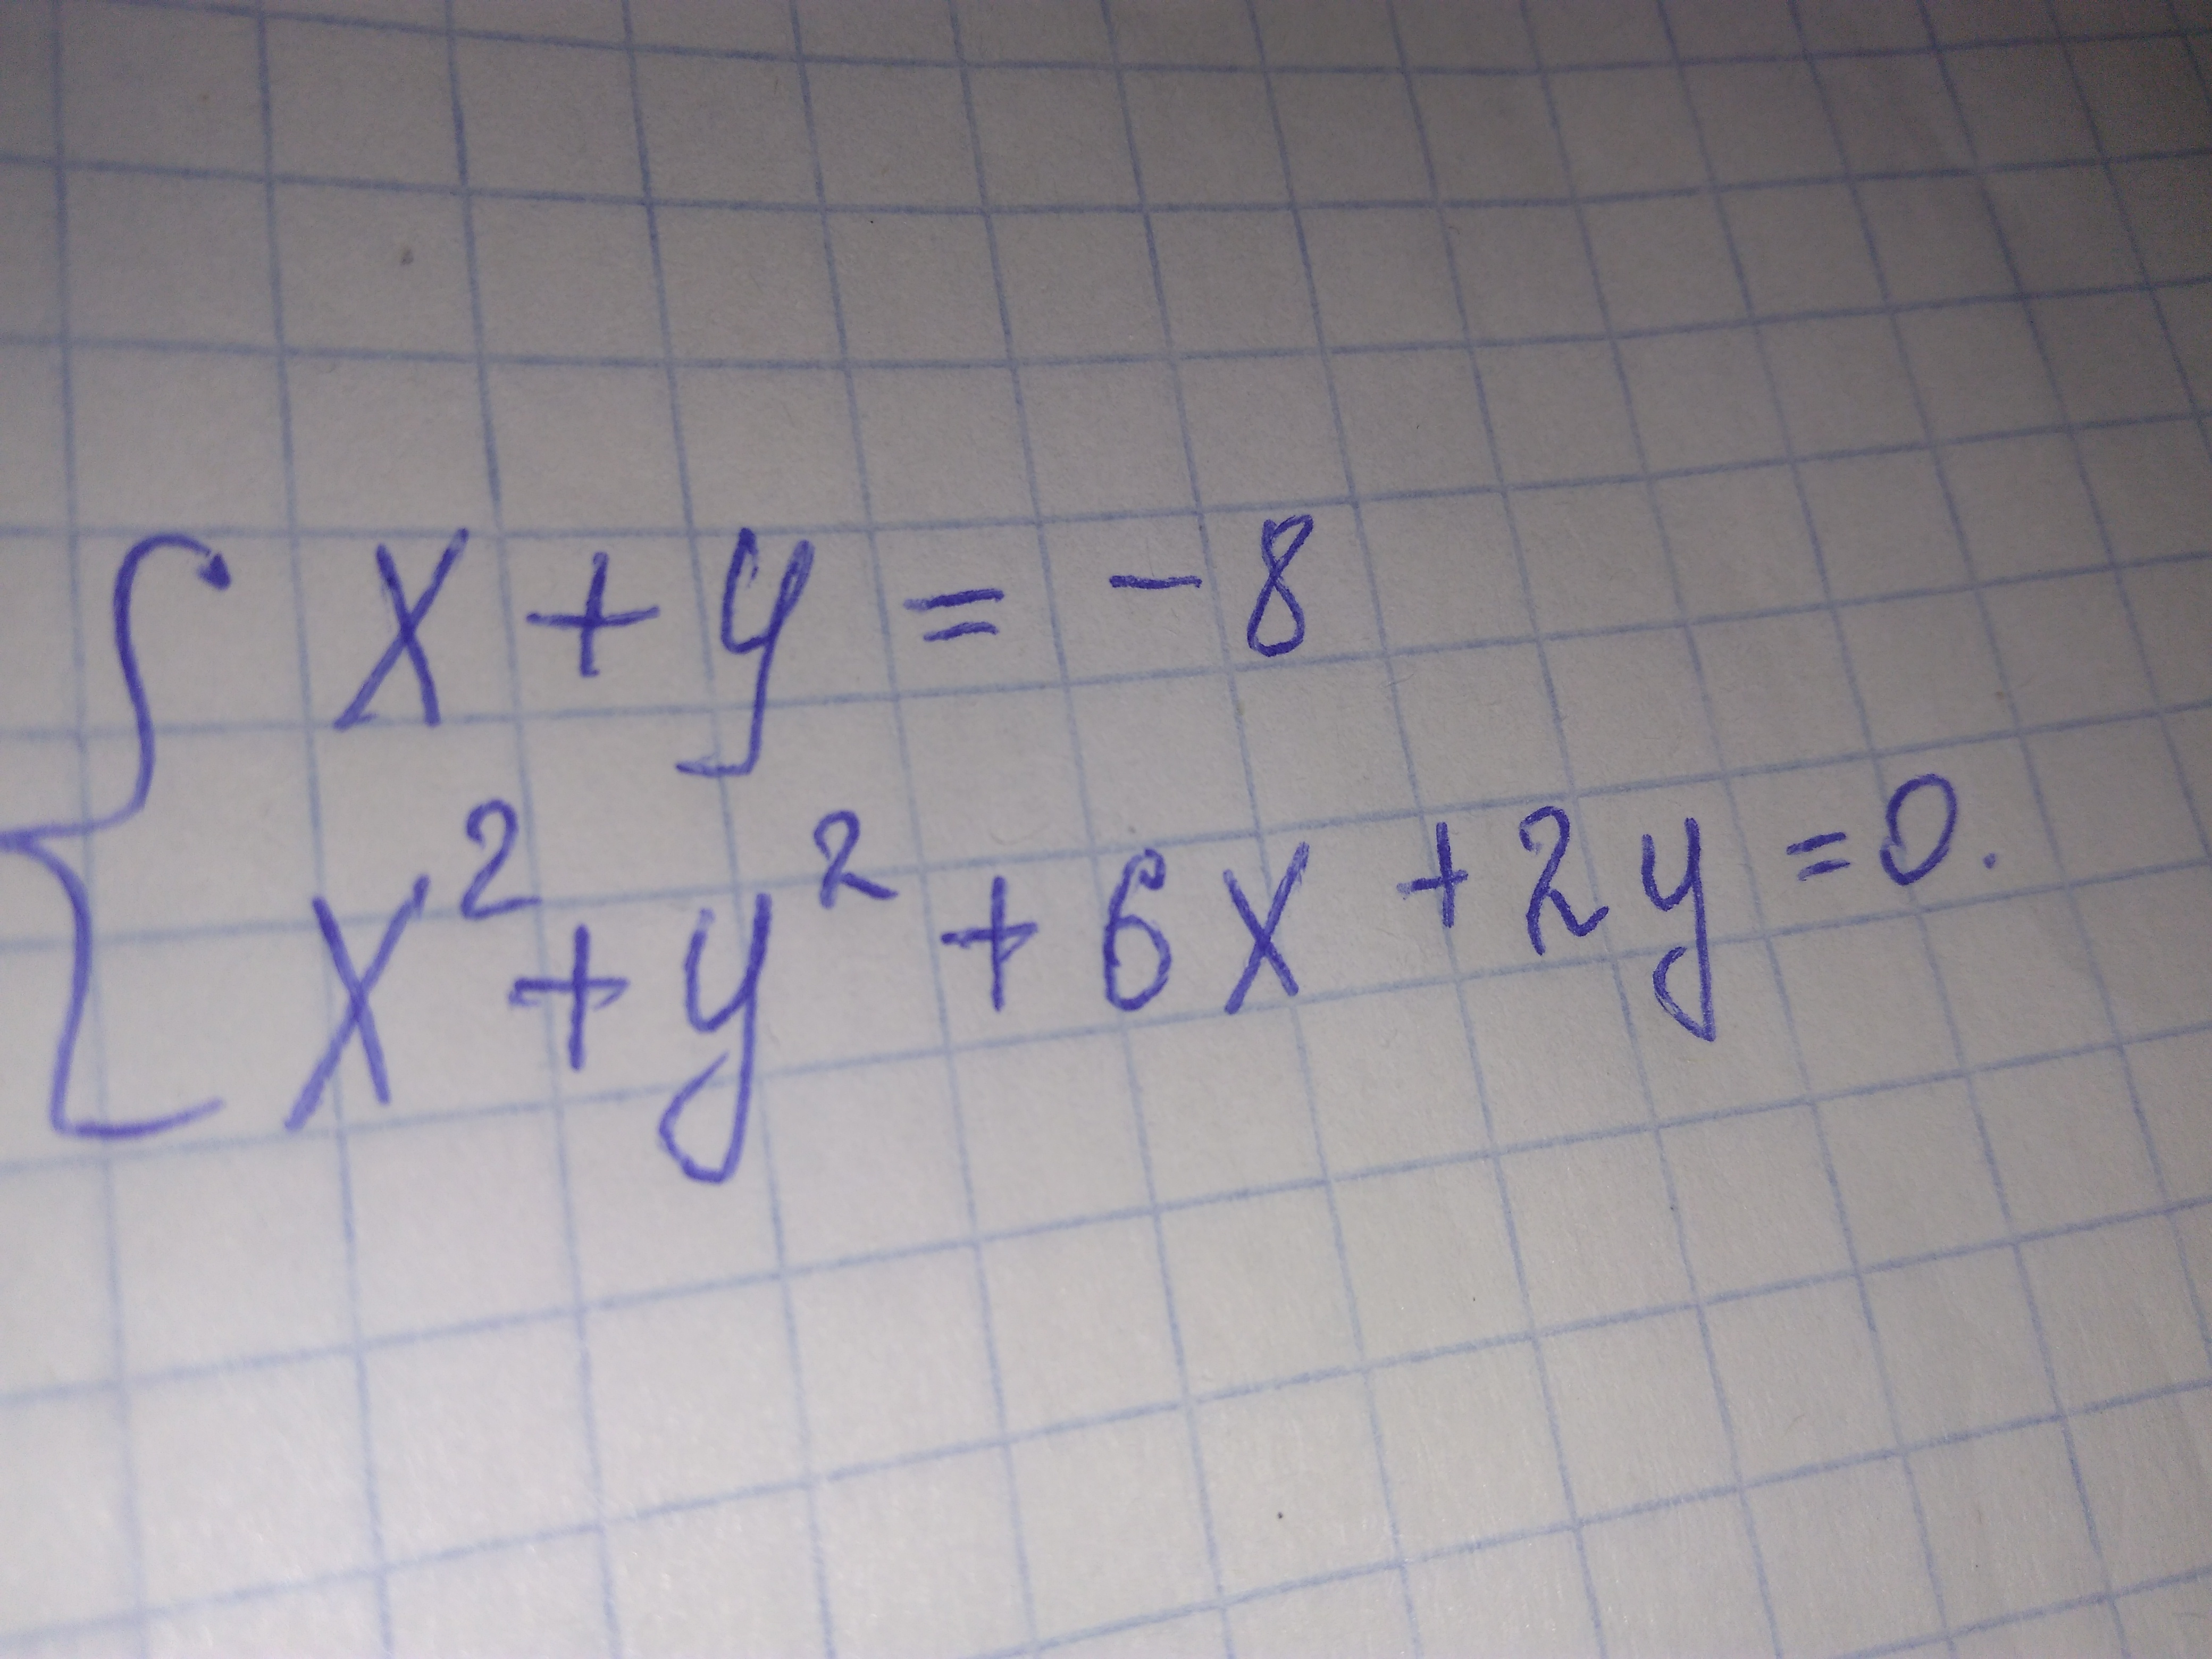 x + y = -8
x² + y² + 6x + 2y = 0.